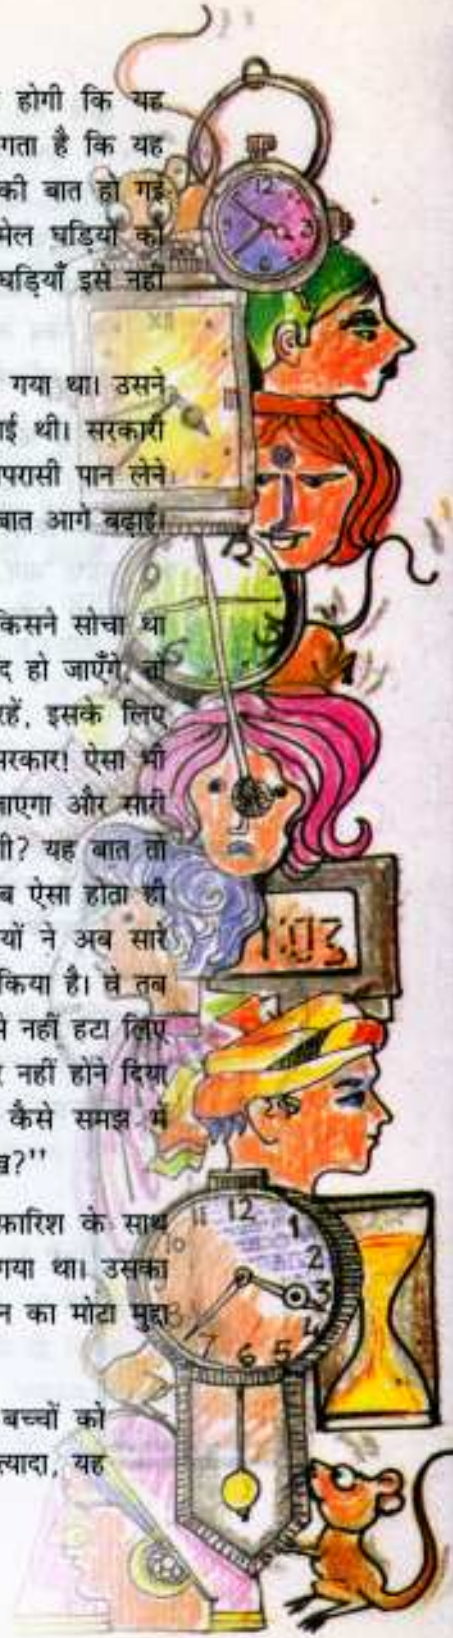 होगी कि यह
गता है कि यह
की बात हो गई
मेल घड़ियों को
घड़ियाँ इसे नहीं
गया था। उसने
ाई थी। सरकारी
परासी पान लेने
बात आगे बढ़ाई।
किसने सोचा था
द हो जाएँगे, तो
रहें, इसके लिए
सरकार! ऐसा भी
जाएगा और सारी
गी? यह बात तो
ब ऐसा होता ही
यों ने अब सारे
किया है। वे तब
से नहीं हटा लिए
र नहीं होने दिया
कैसे समझ में
व्र?''
फ़ारिश के साथ
गया था। उसका
न का मोटा मुद्दा
बच्चों को
त्यादा, यह
12
3
6
XII
III
12
9
3
6
1:03
11 12 1
10 2
3
8 4
7 6 5